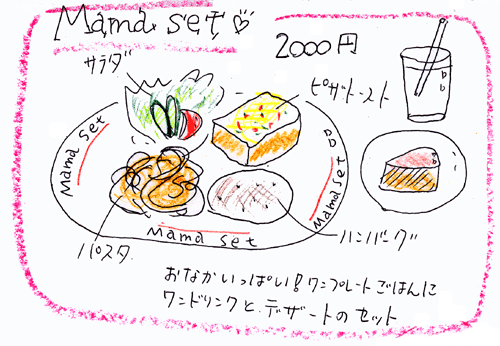 Mama set♡
2000円
サラダ
ピザトースト
Mama set
Mama set
Mama set
パスタ
ハンバーグ
おなかいっぱい!ワンプレートごはんに
ワンドリンクと、デザートのセット